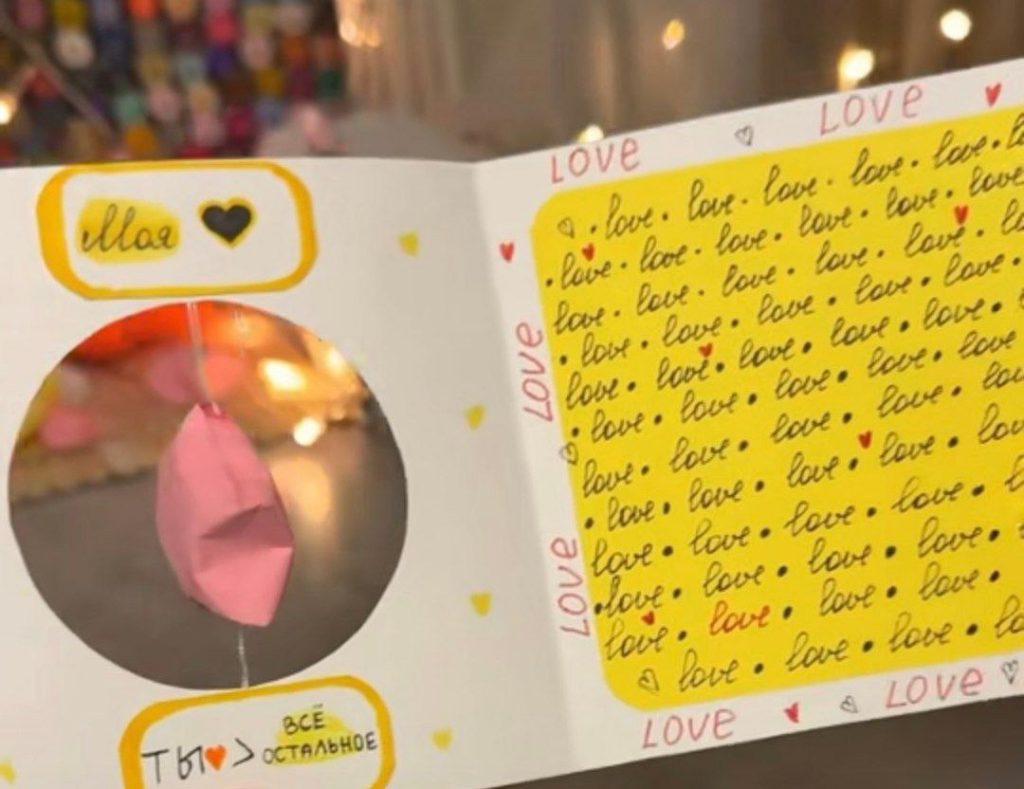 Моя 🖤
ТЫ ♥ > ВСЁ
ОСТАЛЬНОЕ
LOVE ♡ LOVE ♥
LOVE
LOVE
♡ · love · love · love · love · love ·
· love · love · love · love · love · love
love · love · love · love · love ·
· love · love · love · love · love ·
love · love · love · love · love ·
· love · love · love · love · love
love · love · love · love ·
· love · love · love · love ·
love · love · love · love ·
· love · love · love · love ·
love · love · love · love ·
♡ love · love · love ·
LOVE ♥ ♡ LOVE ♡